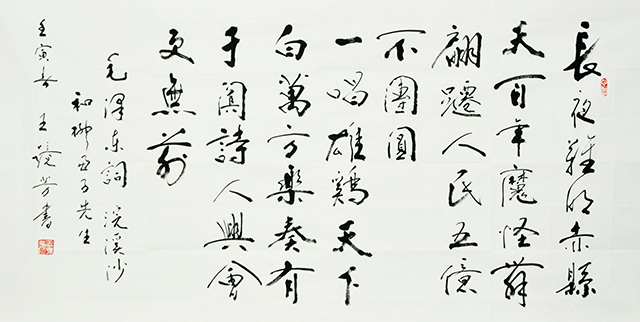 長夜難明赤縣
天百年魔怪舞
翩躚人民五億
不團圓
一唱雄鷄天下
白萬方樂奏有
于闐詩人興會
更無前
毛澤東詞 浣溪沙
和柳亞子先生
壬寅春 王 芳書